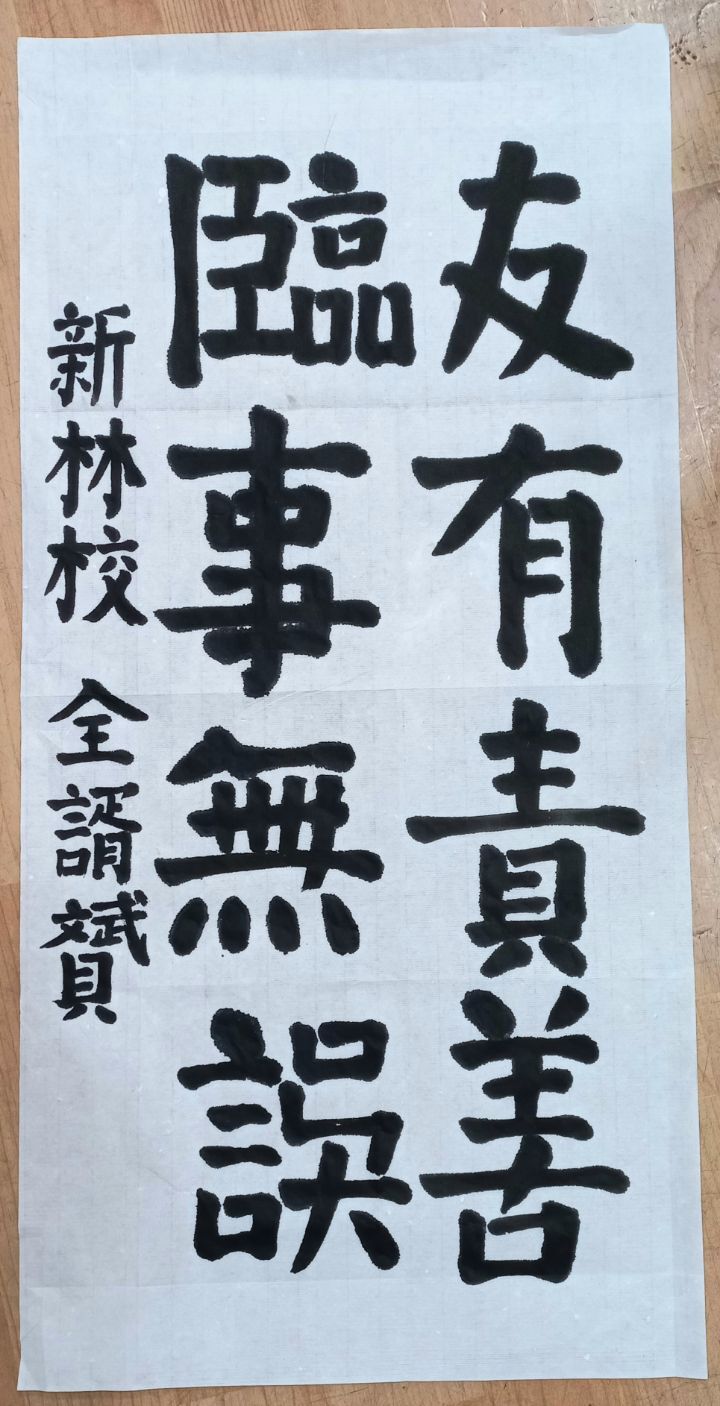 友有責善
臨事無誤
新林校 全諝贇